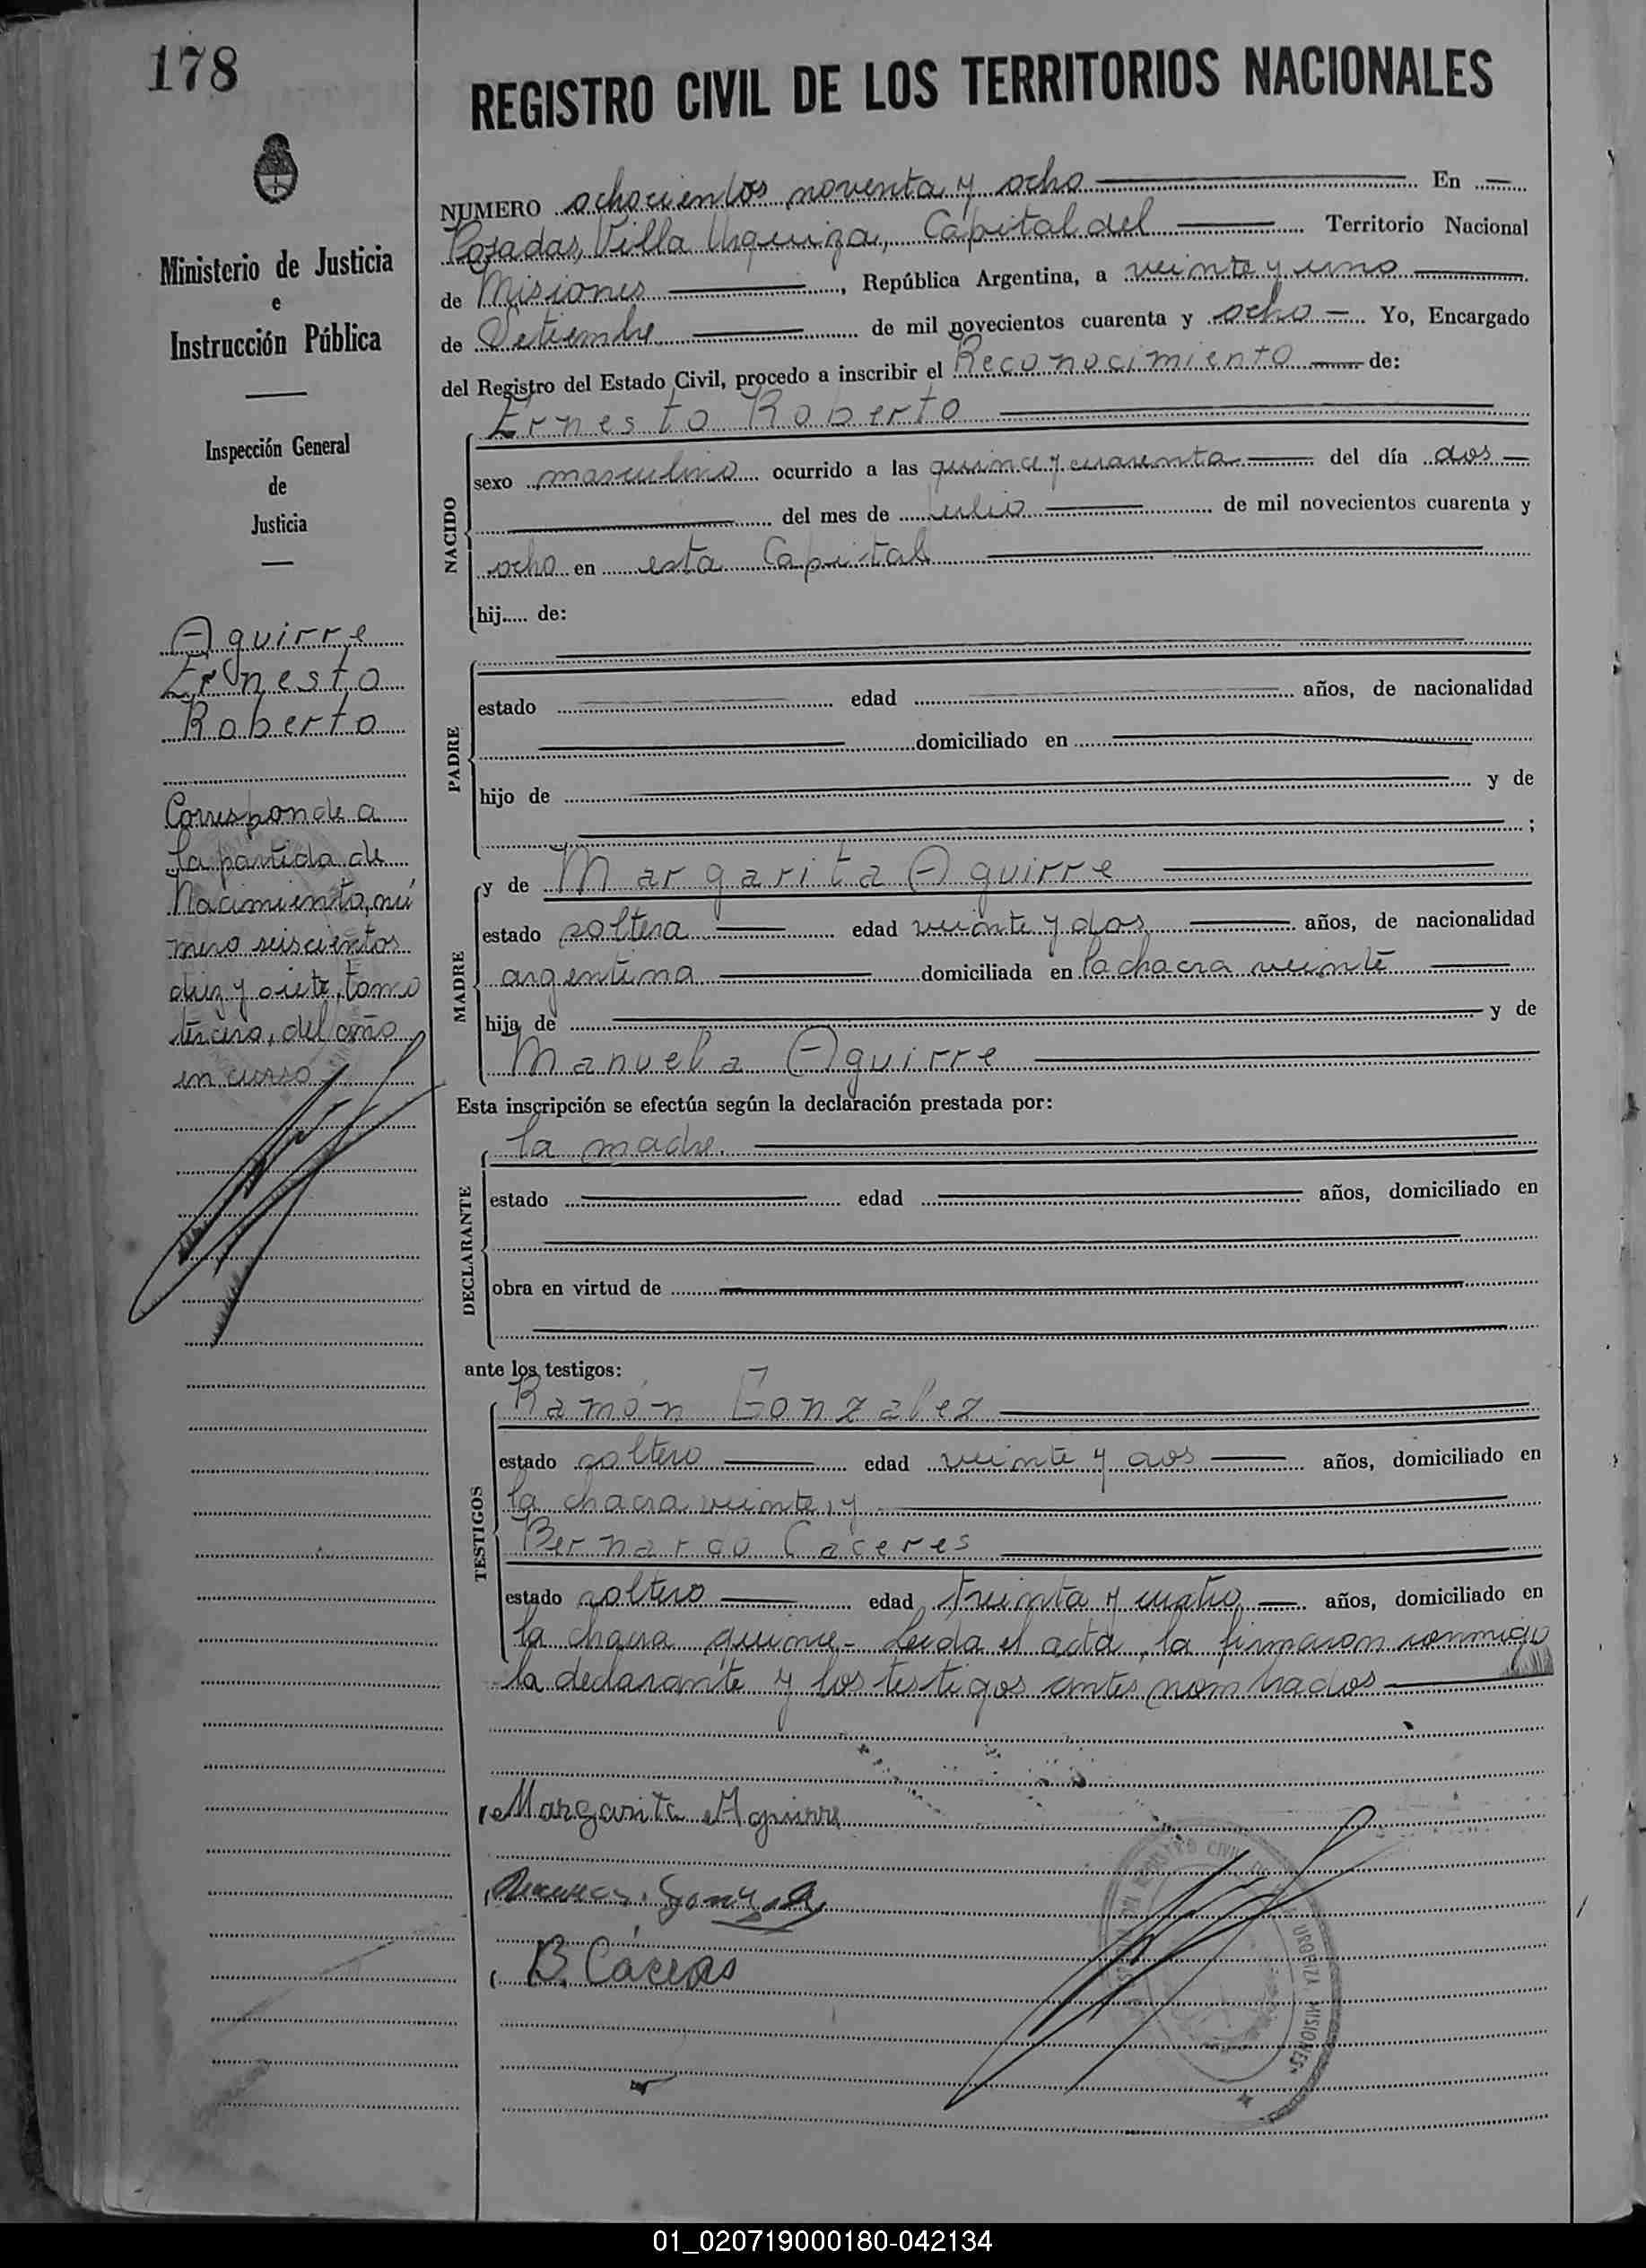 178
REGISTRO CIVIL DE LOS TERRITORIOS NACIONALES
Ministerio de Justicia
e
Instrucción Pública
Inspección General
de
Justicia
Aguirre
Ernesto
Roberto
Corresponde a
la partida de
Nacimiento, nú
mero seiscientos
diez y siete, tomo
tercero, del año
en curso
NUMERO ochocientos noventa y ocho En
Posadas, Villa Urquiza, Capital del Territorio Nacional
de Misiones, República Argentina, a veinte y uno
de Setiembre de mil novecientos cuarenta y ocho Yo, Encargado
del Registro del Estado Civil, procedo a inscribir el Reconocimiento de:
NACIDO
Ernesto Roberto
sexo masculino ocurrido a las quince y cuarenta del día dos
del mes de Julio de mil novecientos cuarenta y
ocho en esta Capital
hij..... de:
PADRE
estado edad años, de nacionalidad
domiciliado en
hijo de y de
;
MADRE
y de Margarita Aguirre
estado soltera edad veinte y dos años, de nacionalidad
argentina domiciliada en la chacra veinte
hija de y de
Manuela Aguirre
Esta inscripción se efectúa según la declaración prestada por:
DECLARANTE
la madre.
estado edad años, domiciliado en
obra en virtud de
ante los testigos:
TESTIGOS
Ramón Gonzalez
estado soltero edad veinte y dos años, domiciliado en
la chacra veinte, y
Bernardo Caceres
estado soltero edad treinta y cuatro años, domiciliado en
la chacra quince - Leida el acta, la firmaron conmigo
la declarante y los testigos antes nombrados
Margarita Aguirre
B. Cáceres
REGISTRO CIVIL
URQUIZA MISIONES
01_020719000180-042134